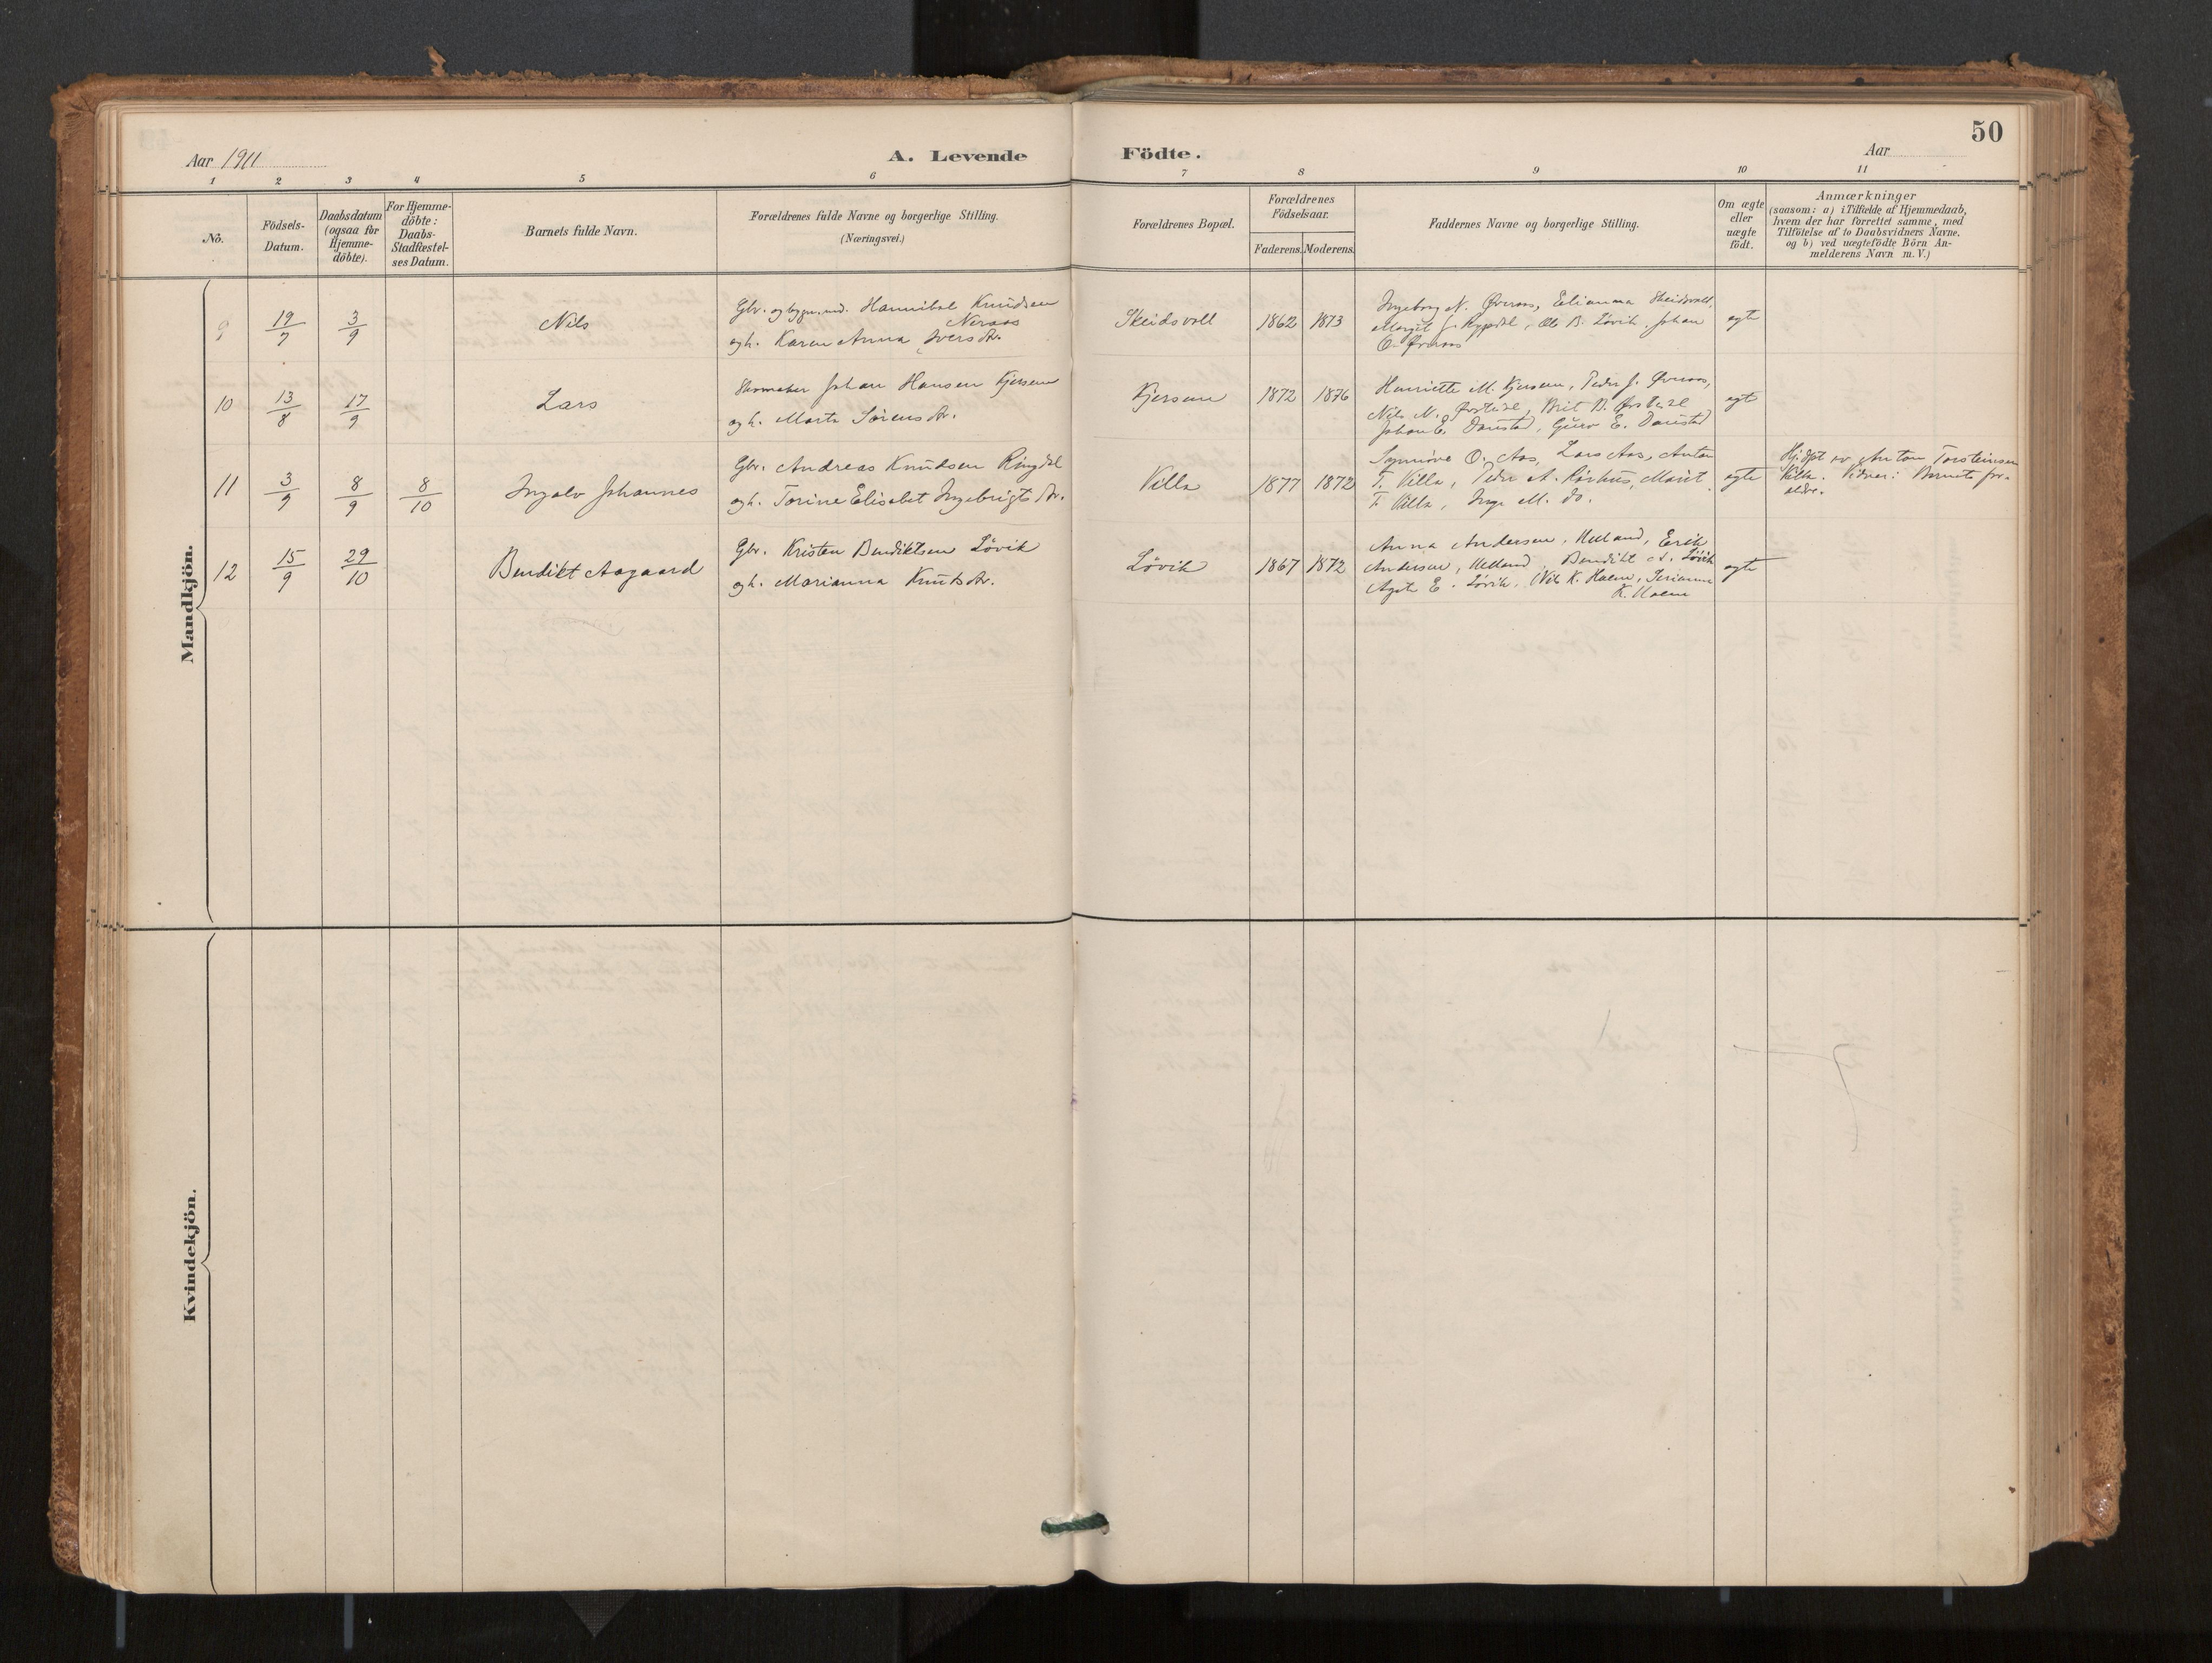 50
Aar 1911
A. Levende Födte.
Aar
1 2 3 4 5 6 7 8 9 10 11
No.
Födsels-Datum.
Daabsdatum (ogsaa for Hjemme-döbte).
For Hjemme-döbte: Daabs-Stadfæstel-ses Datum.
Barnets fulde Navn.
Forældrenes fulde Navne og borgerlige Stilling.
(Næringsvei.)
Forældrenes Bopæl.
Forældrenes Födselsaar.
Faderens. Moderens.
Faddernes Navne og borgerlige Stilling.
Om ægte eller uægte födt.
Anmærkninger
(saasom: a) i Tilfælde af Hjemmedaab,
hvem der har forrettet samme, med
Tilföielse af to Daabsvidners Navne.
og b) ved uægtefödte Börn An-
melderens Navn m. V.)
Mandkjön.
9
19/7
3/9
Nils
Gbr. og bygn.md. Hannibal Knudsen
Neraas
og h. Karen Anna Iversdr.
Skeidsvoll
1862 1873
Ingeborg N. Øveraas, Elianna Skeidsvoll,
Margit J. Rypdal, Ole B. Lövik, Johan
O. Øveraas
egte
10
13/8
17/9
Lars
Skomaker Johan Hansen Kjersem
og h. Marta Sörensdr.
Kjersem
1872 1876
Henriette M. Kjersem, Peder J. Øveraas,
Nils M. Brit B.
Johan E. Daustad, Guro E. Daustad
egte
11
3/9
8/9
8/10
Ingalv Johannes
Gbr. Andreas Knudsen Ringdal
og h. Torine Elisabet Ingebrigtsdr.
Villa
1877 1872
Synnöve O. Aas, Lars Aas, Anton
T. Villa, Peder A. Rörhus, Marit
T. Villa, Inga M. do.
egte
Hj.döpt av Anton Torsteinsen
Villa. Vidner: Barnets for-
eldre.
12
15/9
29/10
Bendikt Aagaard
Gbr. Kristen Bendiktsen Lövik
og h. Marianna Knutsdr.
Lövik
1867 1872
Anna Andersen, Helland, Erik
Andersen, Helland, Bendikt A. Lövik
E. Lövik, Nils K. Haem,
K. Haem
egte
Kvindekjön.